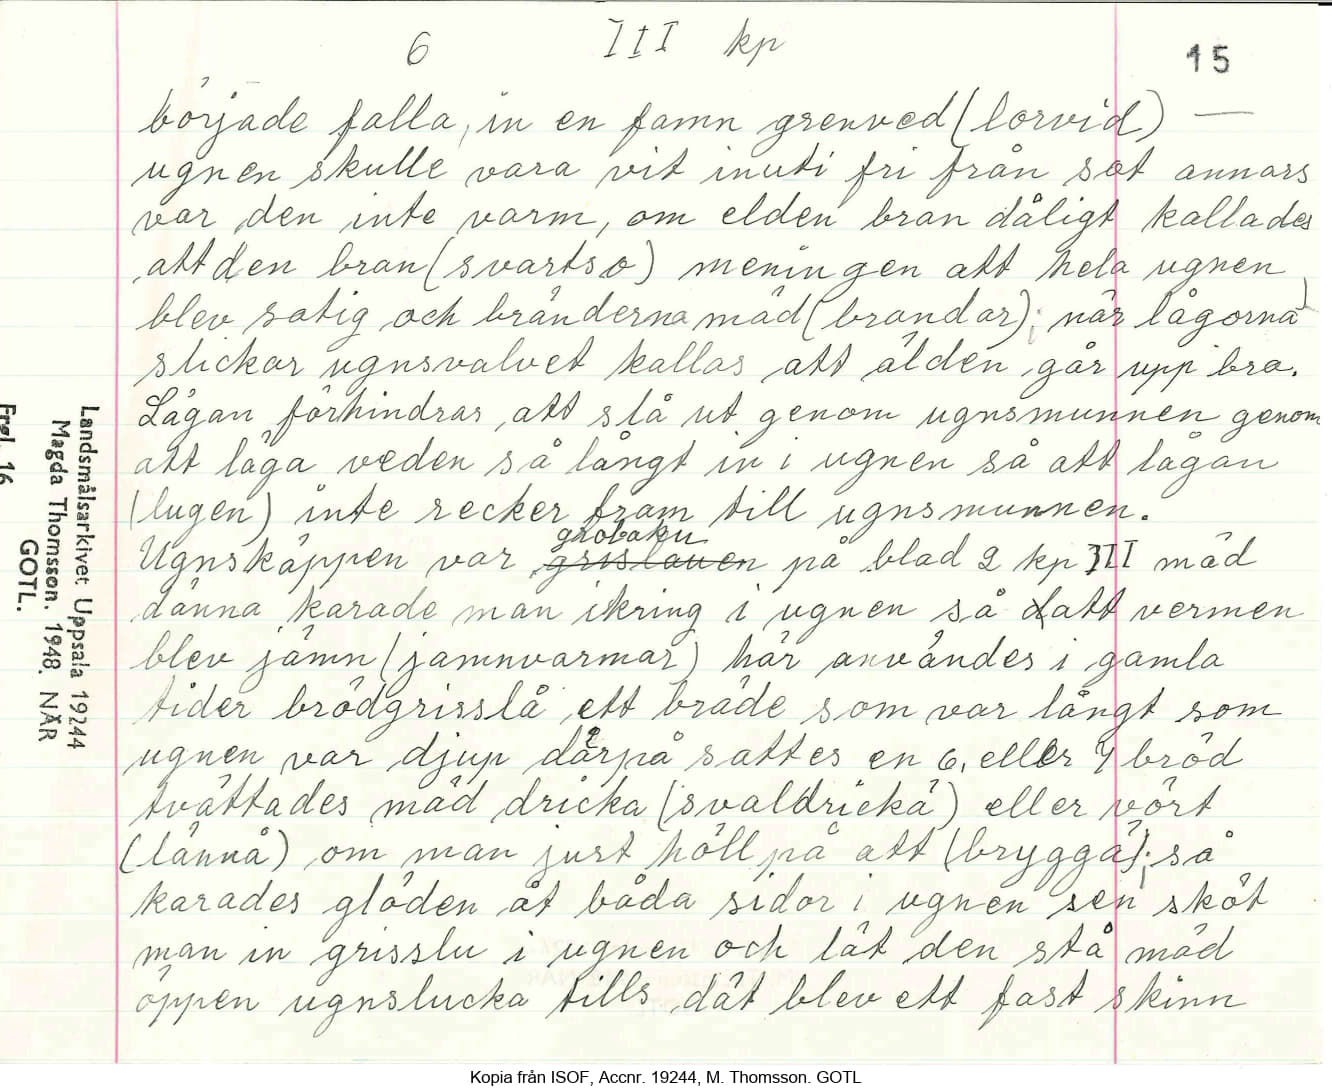 6 III kp 15
började falla, in en famn grenved (lorvid) —
ugnen skulle vara vit inuti fri från sot annars
var den inte varm, om elden bran dåligt kallades
att den bran (svartso) meningen att hela ugnen
blev sotig och bränderna mäd (brandar); när lågorna
slickar ugnsvalvet kallas att älden går upp bra.
Lågan förhindras att slå ut genom ugnsmunnen genom
att läga veden så långt in i ugnen så att lågan
(lugen) inte recker fram till ugnsmunnen.
grobaku
Ugnskäppen var grislauen på blad 2 kp III mäd
dänna karade man ikring i ugnen så att vermen
blev jämn (jamnvarmar) här användes i gamla
tider brödgrisslå ett bräde som var långt som
ugnen var djup därpå sattes en 6, eller 7 bröd
tvättades mäd dricka (svaldrickä) eller vört
(lännå) om man just höll på att (bryggä); så
karades glöden åt båda sidor i ugnen sen sköt
man in grisslu i ugnen och lät den stå mäd
öppen ugnslucka tills dät blev ett fast skinn
Landsmålsarkivet Uppsala 19244
Magda Thomsson. 1948. NÄR
GOTL.
Frgl. 16
Kopia från ISOF, Accnr. 19244, M. Thomsson. GOTL